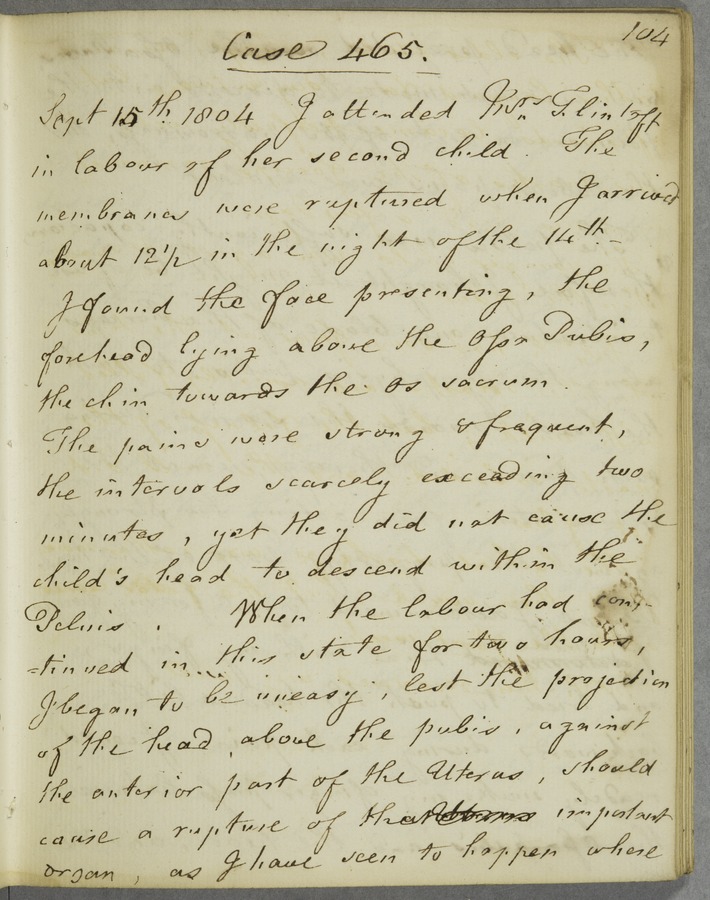 104
Case 465.
Sept 15th 1804 I attended Mrs Flintoft
in labour of her second child. The
membranes were ruptured when I arrived
about 12 1/2 in the night of the 14th -
I found the face presenting, the
forehead lying above the Ossa Pubis,
the chin towards the os sacrum.
The pains were strong & frequent,
the intervals scarcely exceeding two
minutes, yet they did not cause the
child's head to descend within the
Pelvis. When the labour had con-
-tinued in this state for two hours,
I began to be uneasy, lest the projection
of the head above the pubis, against
the anterior part of the Uterus, should
cause a rupture of that important
organ, as I have seen to happen where